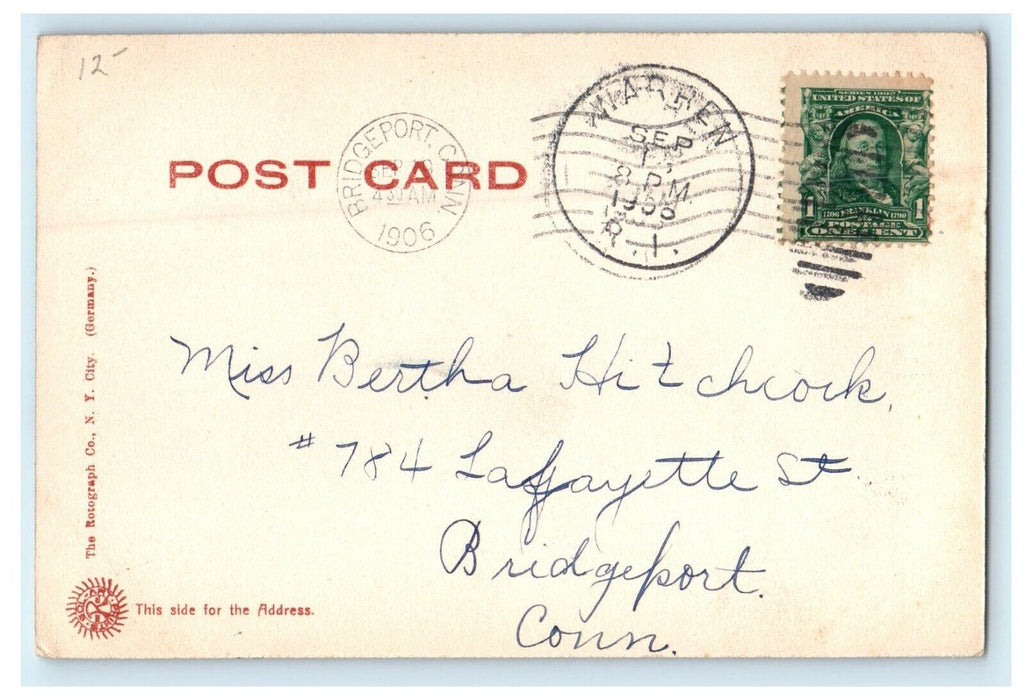 12
POST CARD
BRIDGEPORT, CONN.
SEP
4 30 AM
1906
WARREN
SEP
8 P.M.
R. I.
SERIES 1902
UNITED STATES OF
AMERICA
1 1
1706 FRANKLIN 1790
POSTAGE
ONE CENT
Miss Bertha Hitchcock,
# 784 Laffayette St.
Bridgeport.
Conn.
The Rotograph Co., N. Y. City. (Germany.)
This side for the Address.